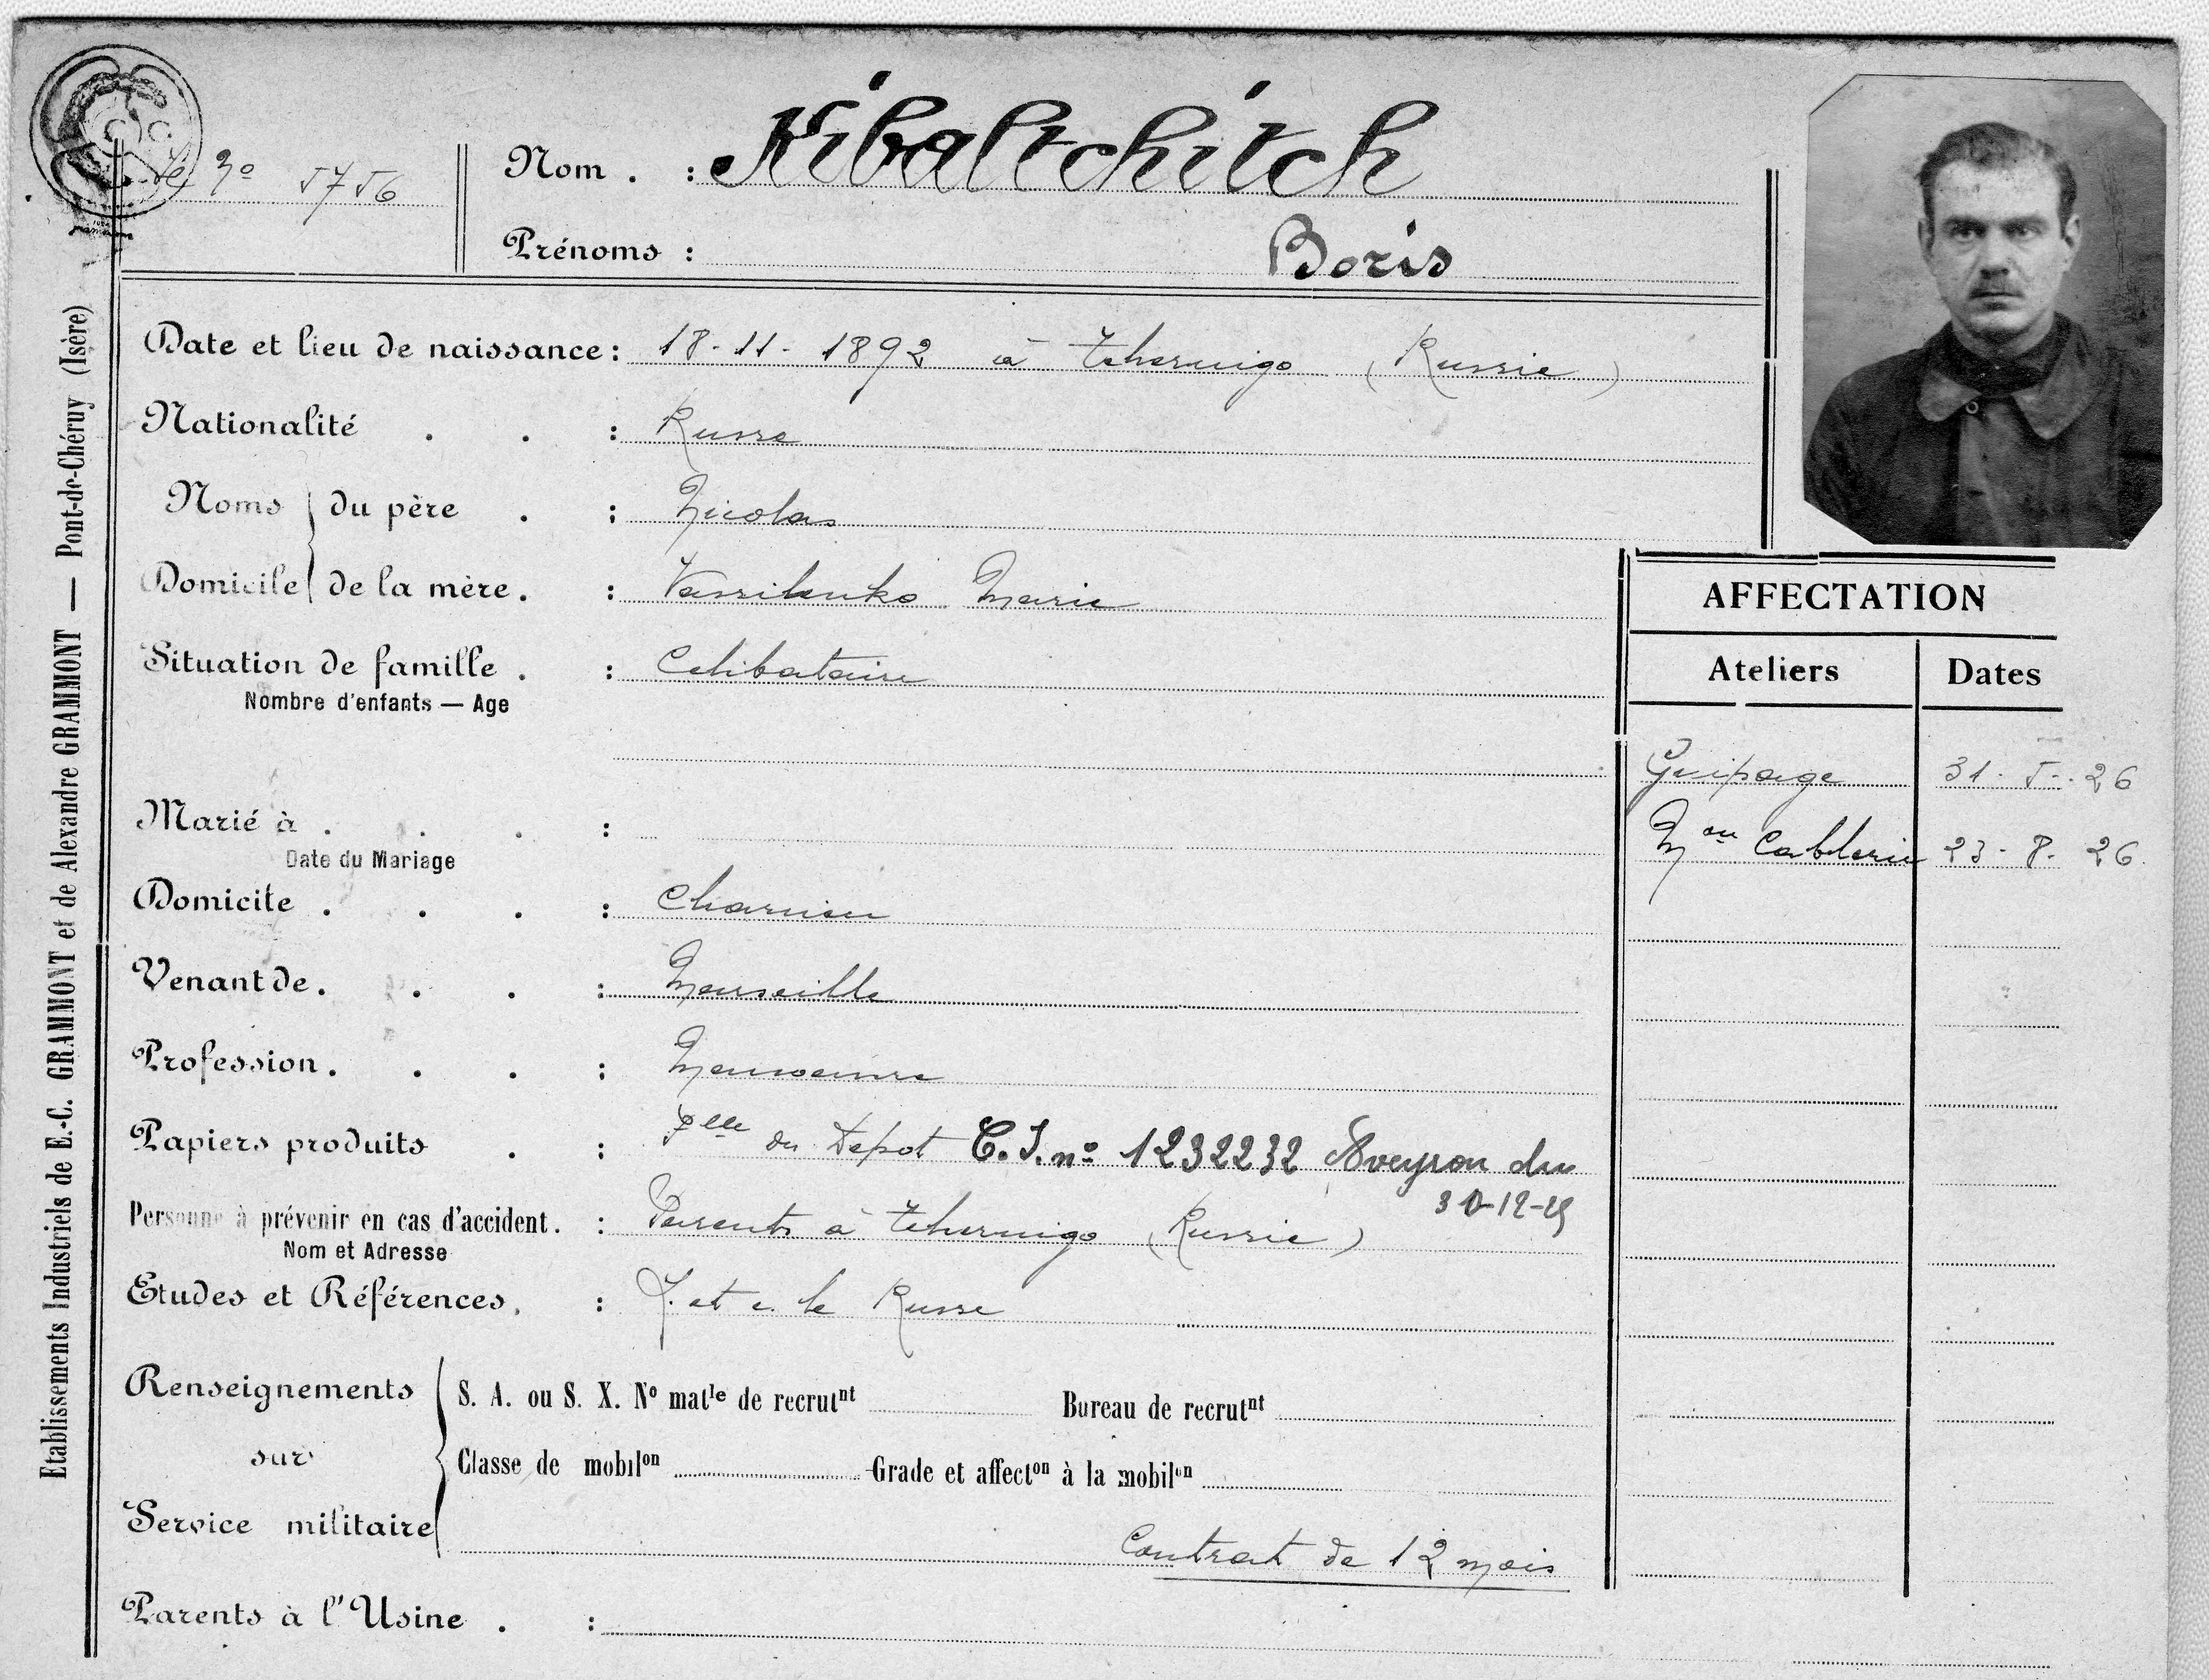 Nº 5756
Nom . : Kibaltchitch
Prénoms : Boris
Date et lieu de naissance : 18-11-1892 à Tchernigo (Russie)
Nationalité . . : Russe
Noms du père . : Nicolas
Domicile de la mère . : Vassilenko Marie
Situation de famille . : Celibataire
Nombre d'enfants — Age
Marié à . . . :
Date du Mariage
Domicile . . . : Charvieu
Venant de . . . : Marseille
Profession . . . : Manoeuvre
Papiers produits . : du Depot C.I. nº 1232232 Aveyron du
30-12-25
Personne à prévenir en cas d'accident . : Parents à Tchernigo (Russie)
Nom et Adresse
Etudes et Références . : l. et e. le Russe
Renseignements sur Service militaire
S. A. ou S. X. Nº matle de recrutnt Bureau de recrutnt
Classe de mobilon Grade et affecton à la mobilon
Contrat de 12 mois
Parents à l'Usine . :
AFFECTATION
Ateliers Dates
Guipage 31-5-26
Mon Cablerie 23-8-26
Etablissements Industriels de E.-C. GRAMMONT et de Alexandre GRAMMONT — Pont-de-Chéruy (Isère)